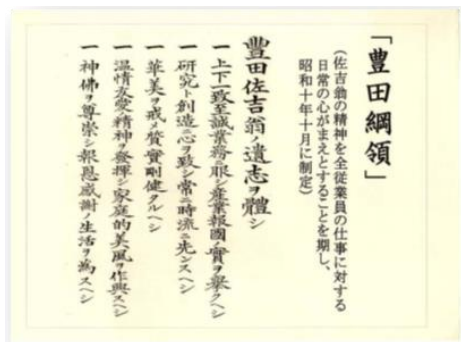 「豊田綱領」
（佐吉翁の精神を全従業員の仕事に対する
日常の心がまえとすることを期し、
昭和十年十月に制定）
豐田佐吉翁ノ遺志ヲ體シ
一 上下一致至誠業務ニ服シ產業報國ノ實ヲ擧クヘシ
一 研究ト創造ニ心ヲ致シ常ニ時流ニ先ンスヘシ
一 華美ヲ戒メ質實剛健タルヘシ
一 温情友愛ノ精神ヲ發揮シ家庭的美風ヲ作興スヘシ
一 神佛ヲ尊崇シ報恩感謝ノ生活ヲ為スヘシ